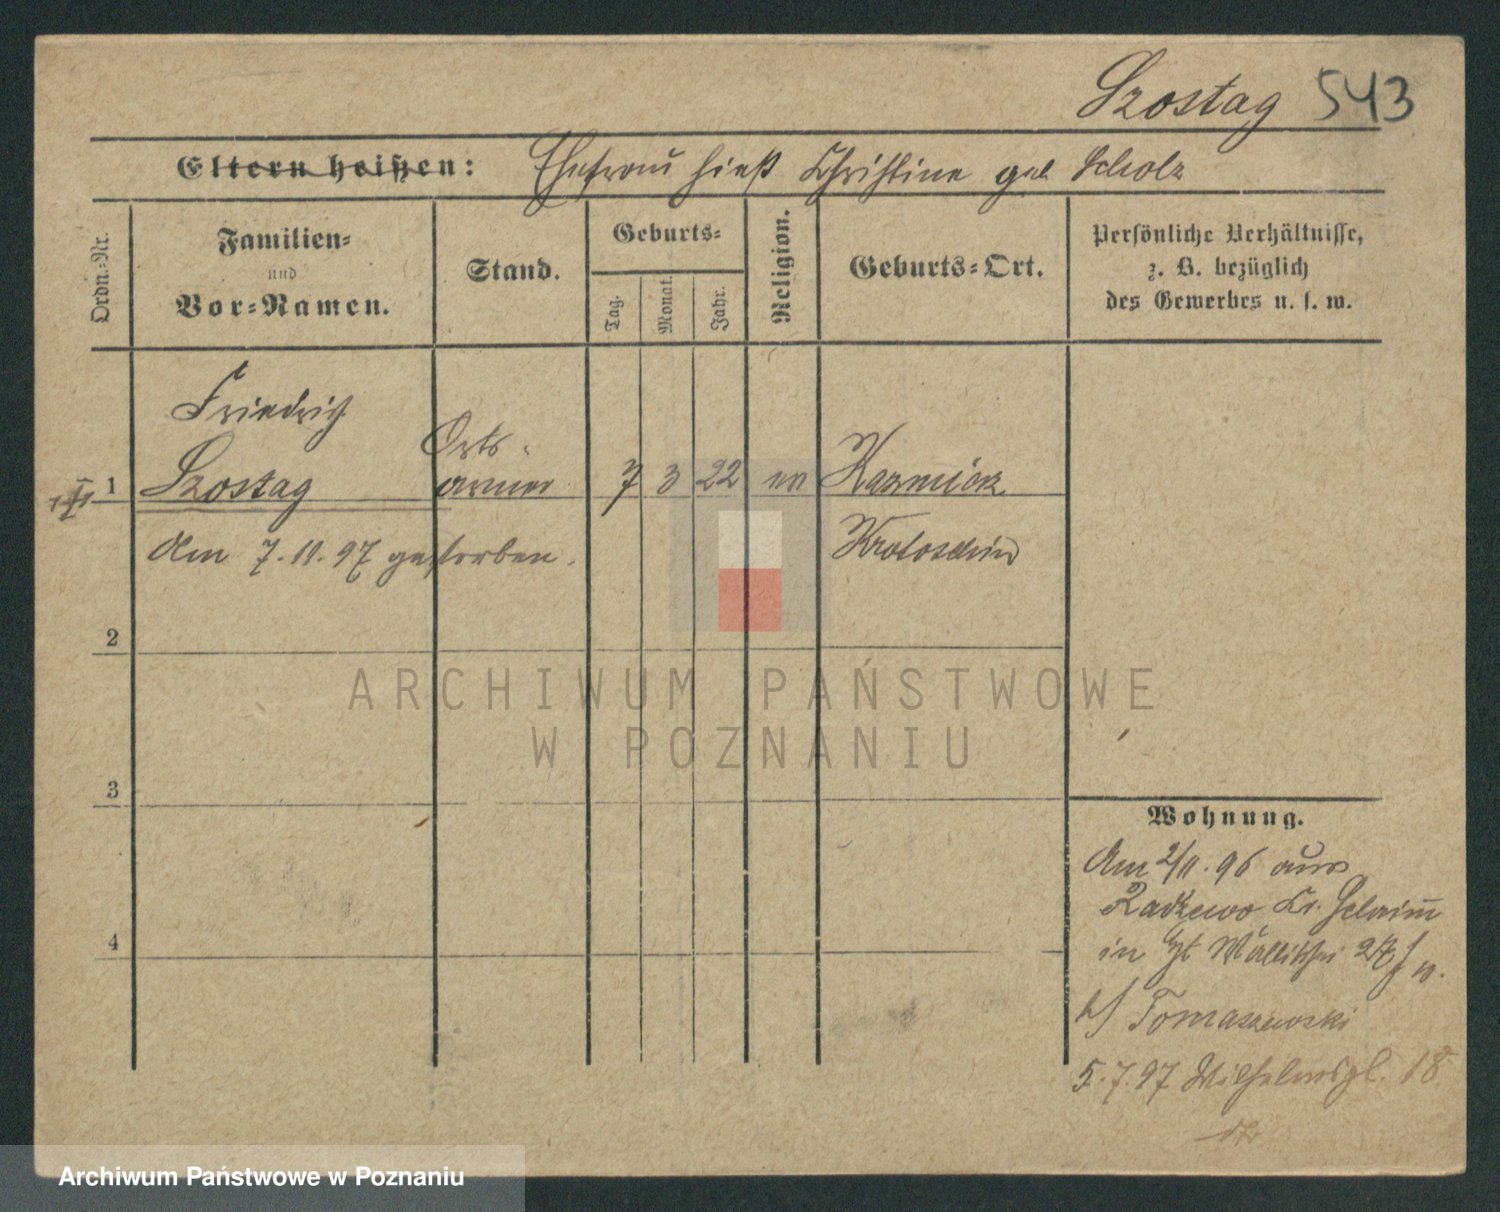 Szostag 543
Eltern heißen: Ehefrau hieß Christine geb Scholz
Ordn.-Nr.
Familien-
und
Vor-Namen.
Stand.
Geburts-
Tag.
Monat.
Jahr.
Religion.
Geburts-Ort.
Persönliche Verhältnisse,
z. B. bezüglich
des Gewerbes u. s. w.
Friedrich
Orts-
1 Szostag armer 7 3 22 ev Kazmierz
Am 7. 11. 97 gestorben. Krotoschin
2
3
4
ARCHIWUM PAŃSTWOWE
W POZNANIU
Wohnung.
Am 2/11. 96 aus
Radzewo Kr. Schrimm
in
b/ Tomaszewski
5. 7. 97 Wilhelmspl. 18
Archiwum Państwowe w Poznaniu